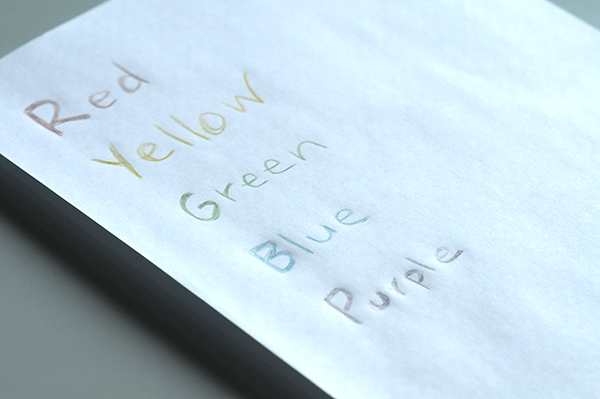 Red
Yellow
Green
Blue
Purple